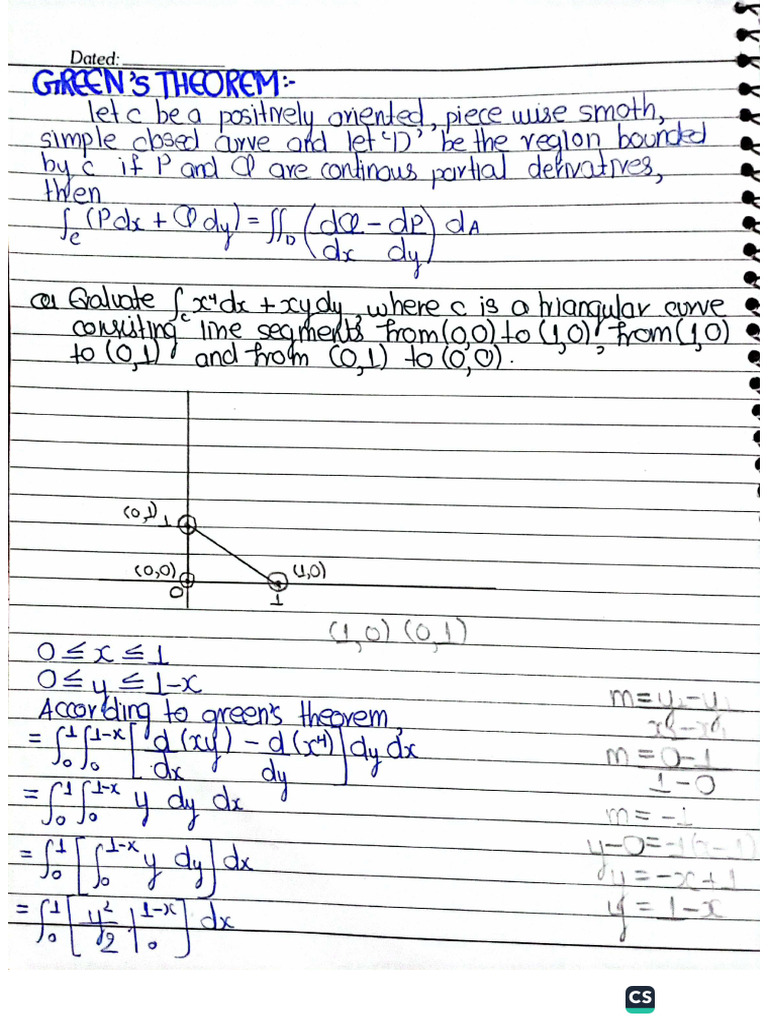 Dated:
GREEN'S THEOREM:-
let c be a positively oriented, piece wise smoth,
simple closed curve and let 'D' be the region bounded
by c if P and Q are continous partial derivatives,
then
∫c (Pdx + Q dy) = ∬D (dQ/dx - dP/dy) dA
Q1 Evaluate ∫c x⁴dx + xy dy, where c is a triangular curve
consisting line segments from (0,0) to (1,0), from (1,0)
to (0,1) and from (0,1) to (0,0).
(0,1) 1
(0,0) (1,0)
0 1
(1,0) (0,1)
0 ≤ x ≤ 1
0 ≤ y ≤ 1-x
According to green's theorem,
= ∫₀¹ ∫₀¹⁻ˣ [d(xy)/dx - d(x⁴)/dy] dy dx
= ∫₀¹ ∫₀¹⁻ˣ y dy dx
= ∫₀¹ [∫₀¹⁻ˣ y dy] dx
= ∫₀¹ [y²/2 |₀¹⁻ˣ] dx
m = y₂-y₁/x₂-x₁
m = 0-1/1-0
m = -1
y-0 = -1(x-1)
y = -x+1
y = 1-x
CS